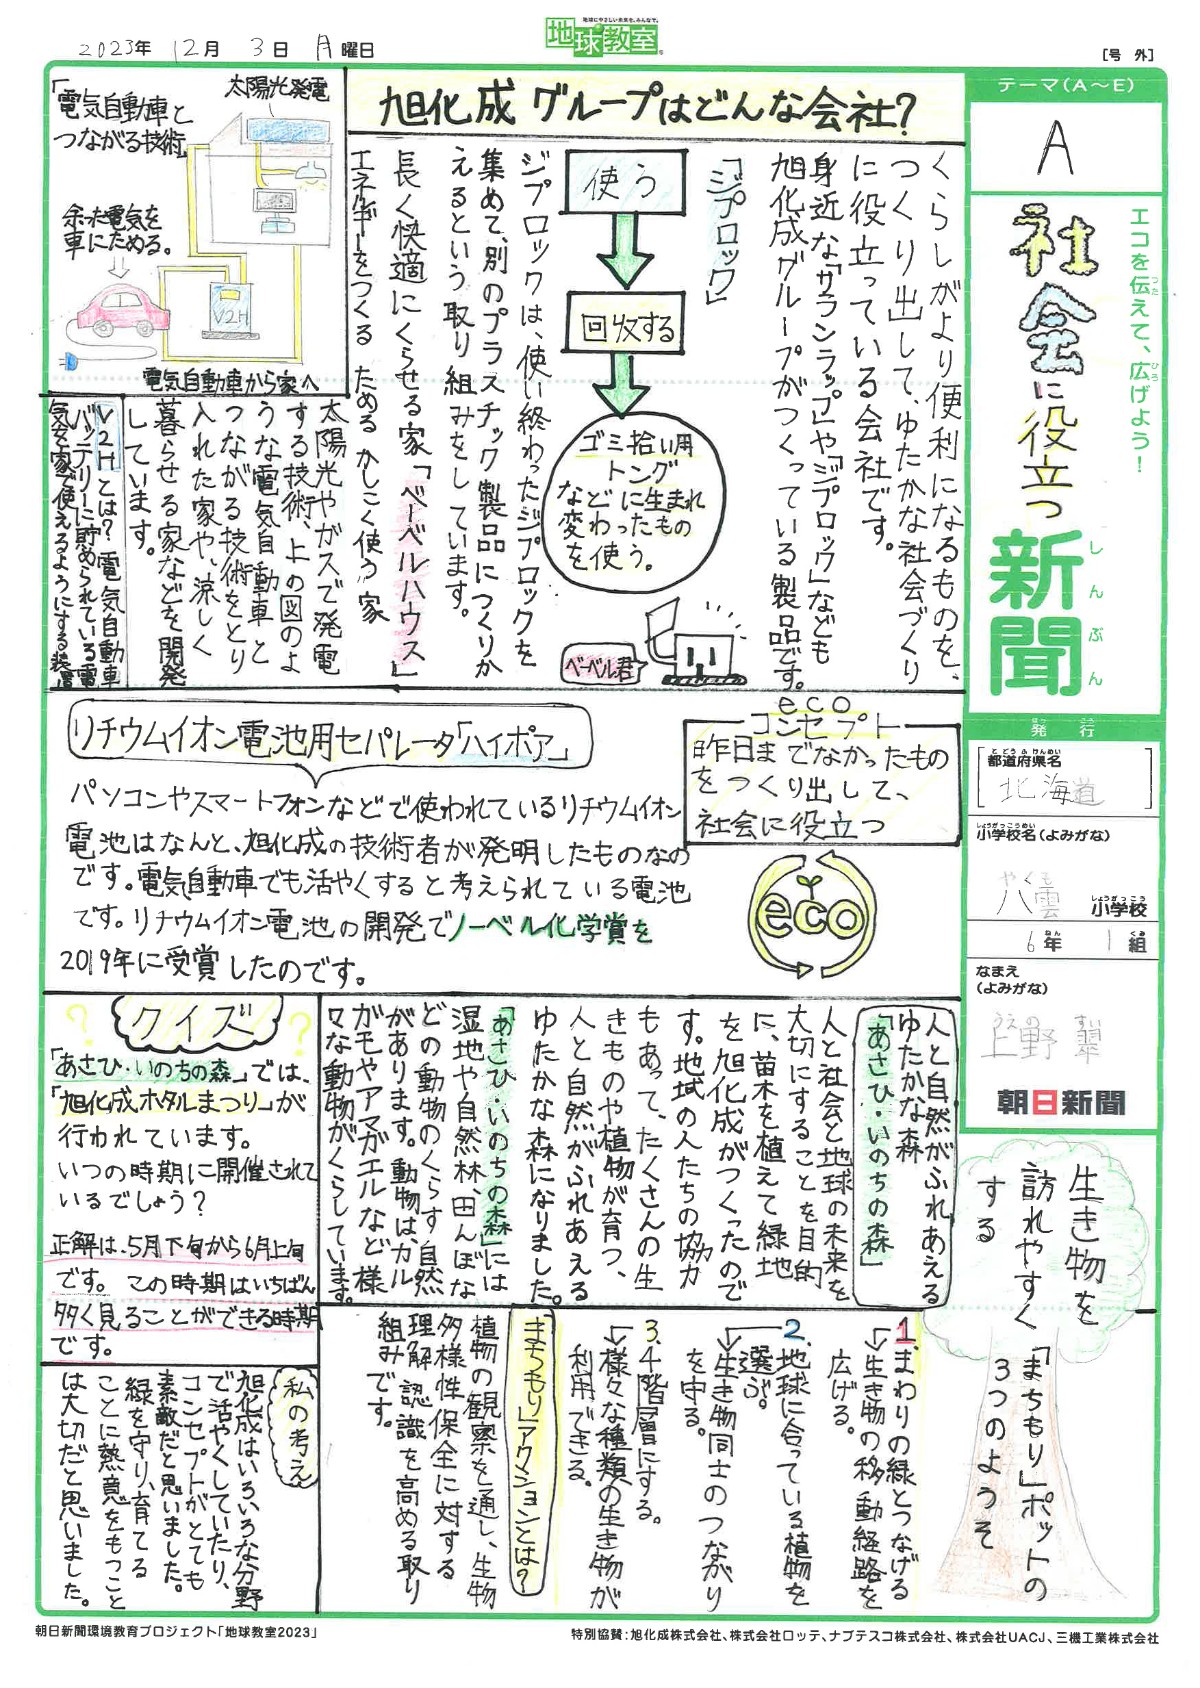 地球にやさしい未来を、みんなで。
地球教室
2023年 12月 3日 月曜日
［号 外］
テーマ(A〜E)
A
エコを伝えて、広げよう！
つた
ひろ
社会に役立つ
新聞
しんぶん
発行
はっこう
都道府県名
とどうふけんめい
北海道
小学校名(よみがな)
しょうがっこうめい
やくも
八雲 小学校
しょうがっこう
6年 1組
ねん
くみ
なまえ
(よみがな)
うえの すい
上野 翠
朝日新聞
旭化成グループはどんな会社？
くらしがより便利になるものを、
つくり出して、ゆたかな社会づくり
に役立っている会社です。
身近な「サランラップ」や「ジプロック」なども
旭化成グループがつくっている製品です。
「ジプロック」
使う
回収する
ゴミ拾い用
トング
などに生まれ
変わったもの
を使う。
ジプロックは、使い終わったジプロックを
集めて、別のプラスチック製品につくりか
えるという取り組みをしています。
ベーベル君
長く快適にくらせる家「ベーベルハウス」
エネルギーをつくる ためる かしこく使う家
「電気自動車と
つながる技術」
太陽光発電
余った電気を
車にためる。
V2H
電気自動車から家へ
太陽光やガスで発電
する技術、上の図のよ
うな電気自動車と
つながる技術をとり
入れた家や、涼しく
暮らせる家などを開発
しています。
V2Hとは？電気自動車
バッテリーに貯められている電
気を家で使えるようにする装置
リチウムイオン電池用セパレータ「ハイポア」
パソコンやスマートフォンなどで使われているリチウムイオン
電池はなんと、旭化成の技術者が発明したものなの
です。電気自動車でも活やくすると考えられている電池
です。リチウムイオン電池の開発でノーベル化学賞を
2019年に受賞したのです。
eco
コンセプト
昨日までなかったもの
をつくり出して、
社会に役立つ
eco
人と自然がふれあえる
ゆたかな森
「あさひ・いのちの森」
人と社会と地球の未来を
大切にすることを目的
に、苗木を植えて緑地
を旭化成がつくったので
す。地域の人たちの協力
もあって、たくさんの生
きものや植物が育つ、
人と自然がふれあえる
ゆたかな森になりました。
「あさひ・いのちの森」には
湿地や自然林、田んぼな
どの動物のくらす自然
があります。動物はカル
ガモやアマガエルなど様
々な動物がくらしています。
？クイズ？
「あさひ・いのちの森」では、
「旭化成ホタルまつり」が
行われています。
いつの時期に開催されて
いるでしょう？
正解は、5月下旬から6月上旬
です。この時期はいちばん
多く見ることができる時期
です。
生き物を
訪れやすく
する
「まちもり」ポットの
3つのようそ
1.まわりの緑とつなげる
→生き物の移動経路を
広げる。
2.地球に合っている植物を
選ぶ。
→生き物同士のつながり
を守る。
3.4階層にする。
→様々な種類の生き物が
利用できる。
「まちもり」アクションとは？
植物の観察を通し、生物
多様性保全に対する
理解 認識を高める取り
組みです。
私の考え
旭化成はいろいろな分野
で活やくしていたり、
コンセプトがとても
素敵だと思いました。
緑を守り、育てる
ことに熱意をもつこと
は大切だと思いました。
朝日新聞環境教育プロジェクト「地球教室2023」
特別協賛：旭化成株式会社、株式会社ロッテ、ナブテスコ株式会社、株式会社UACJ、三機工業株式会社